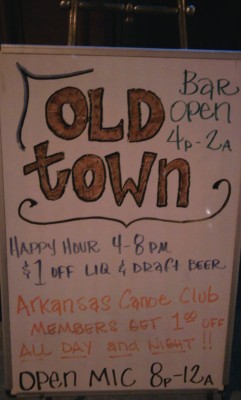 OLD
TOWN
BAR
OPEN
4P-2A
HAPPY HOUR 4-8 PM
$1 OFF LIQ & DRAFT BEER
ARKANSAS CANOE CLUB
MEMBERS GET 1.00 OFF
ALL DAY and NIGHT !!
OPEN MIC 8P-12A